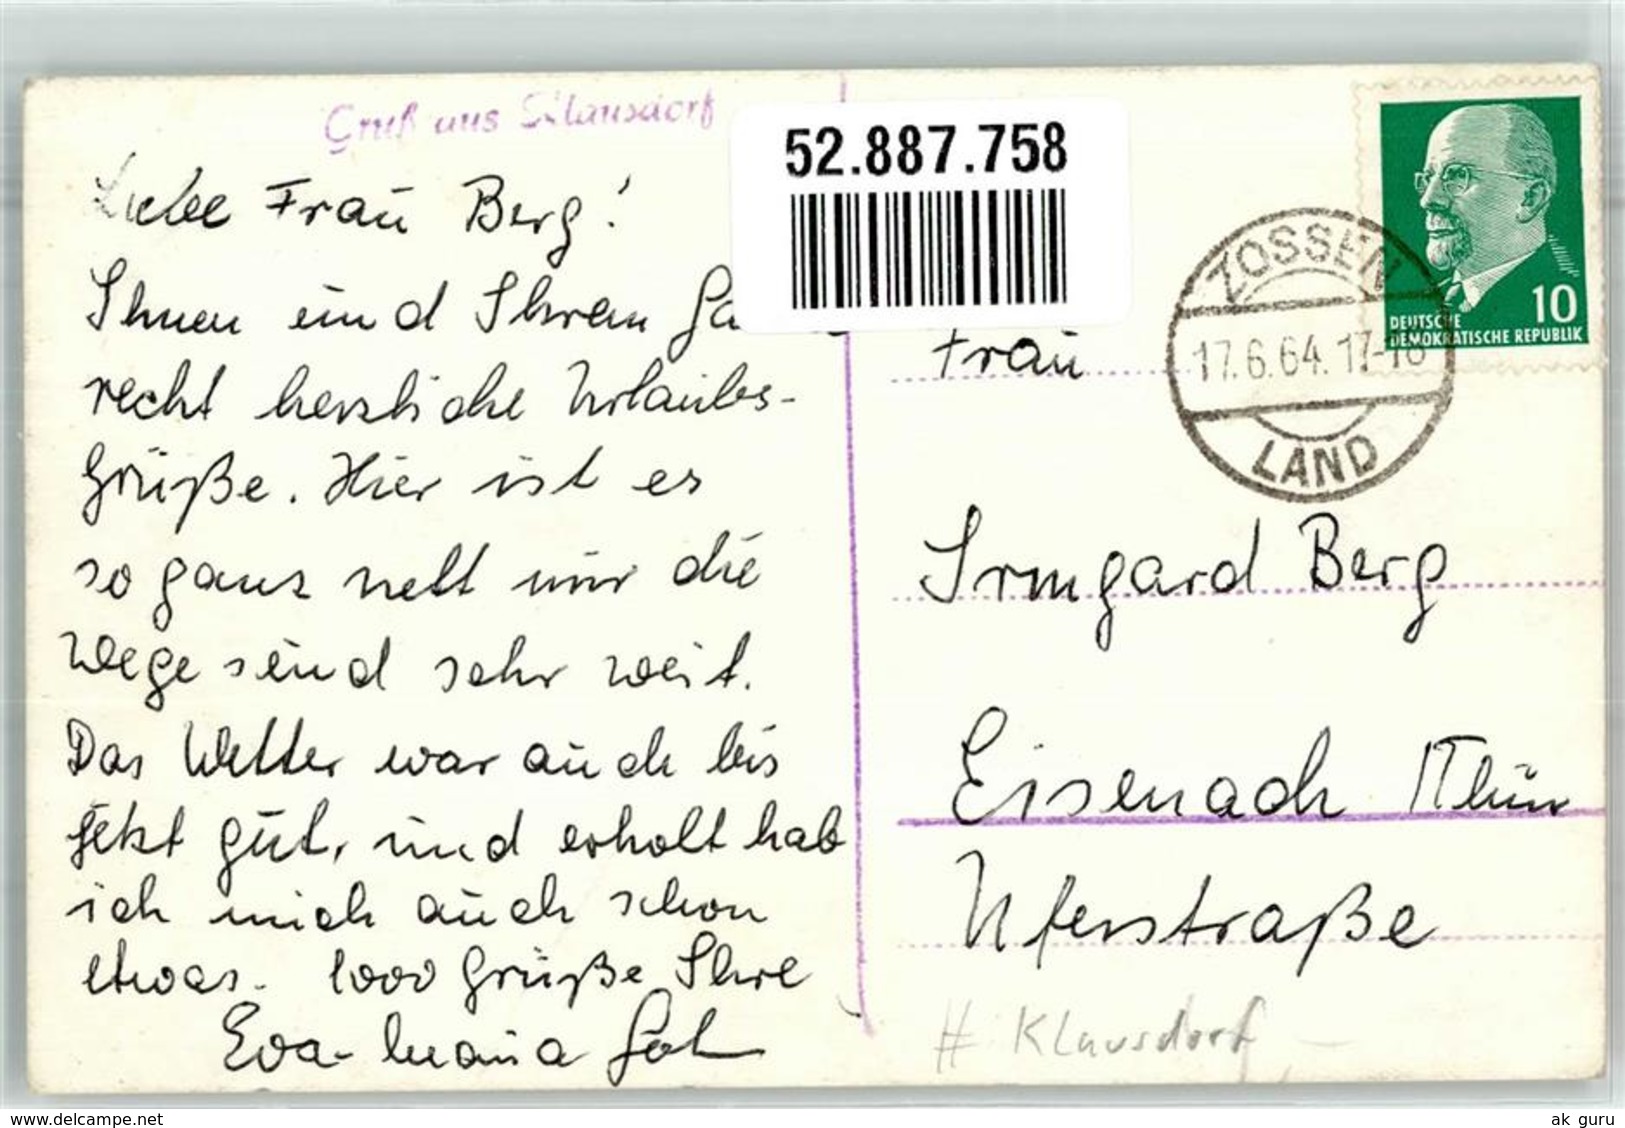 Gruß aus Klausdorf
52.887.758
Liebe Frau Berg!
Ihnen und Ihrem
recht herzliche Urlaubs-
Grüße. Hier ist es
so ganz nett nur die
Wege sind sehr weit.
Das Wetter war auch bis
jetzt gut, und erholt hab
ich mich auch schon
etwas. 1000 Grüße Ihre
Eva-Maria
10
DEUTSCHE
DEMOKRATISCHE REPUBLIK
ZOSSEN
17.6.64.17-18
LAND
Frau
Irmgard Berg
Eisenach /Thür
Uferstraße
# Klausdorf
www.delcampe.net
ak guru